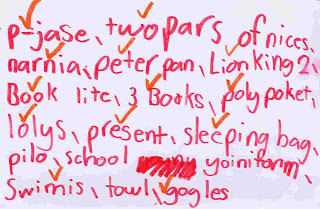 p-jase, two pars of nices,
narnia, peter pan, Lion king 2,
Book lite, 3 Books, poly poket,
lolys, present, sleeping bag,
pilo, school yoiniform,
Swimis, towl, gogles